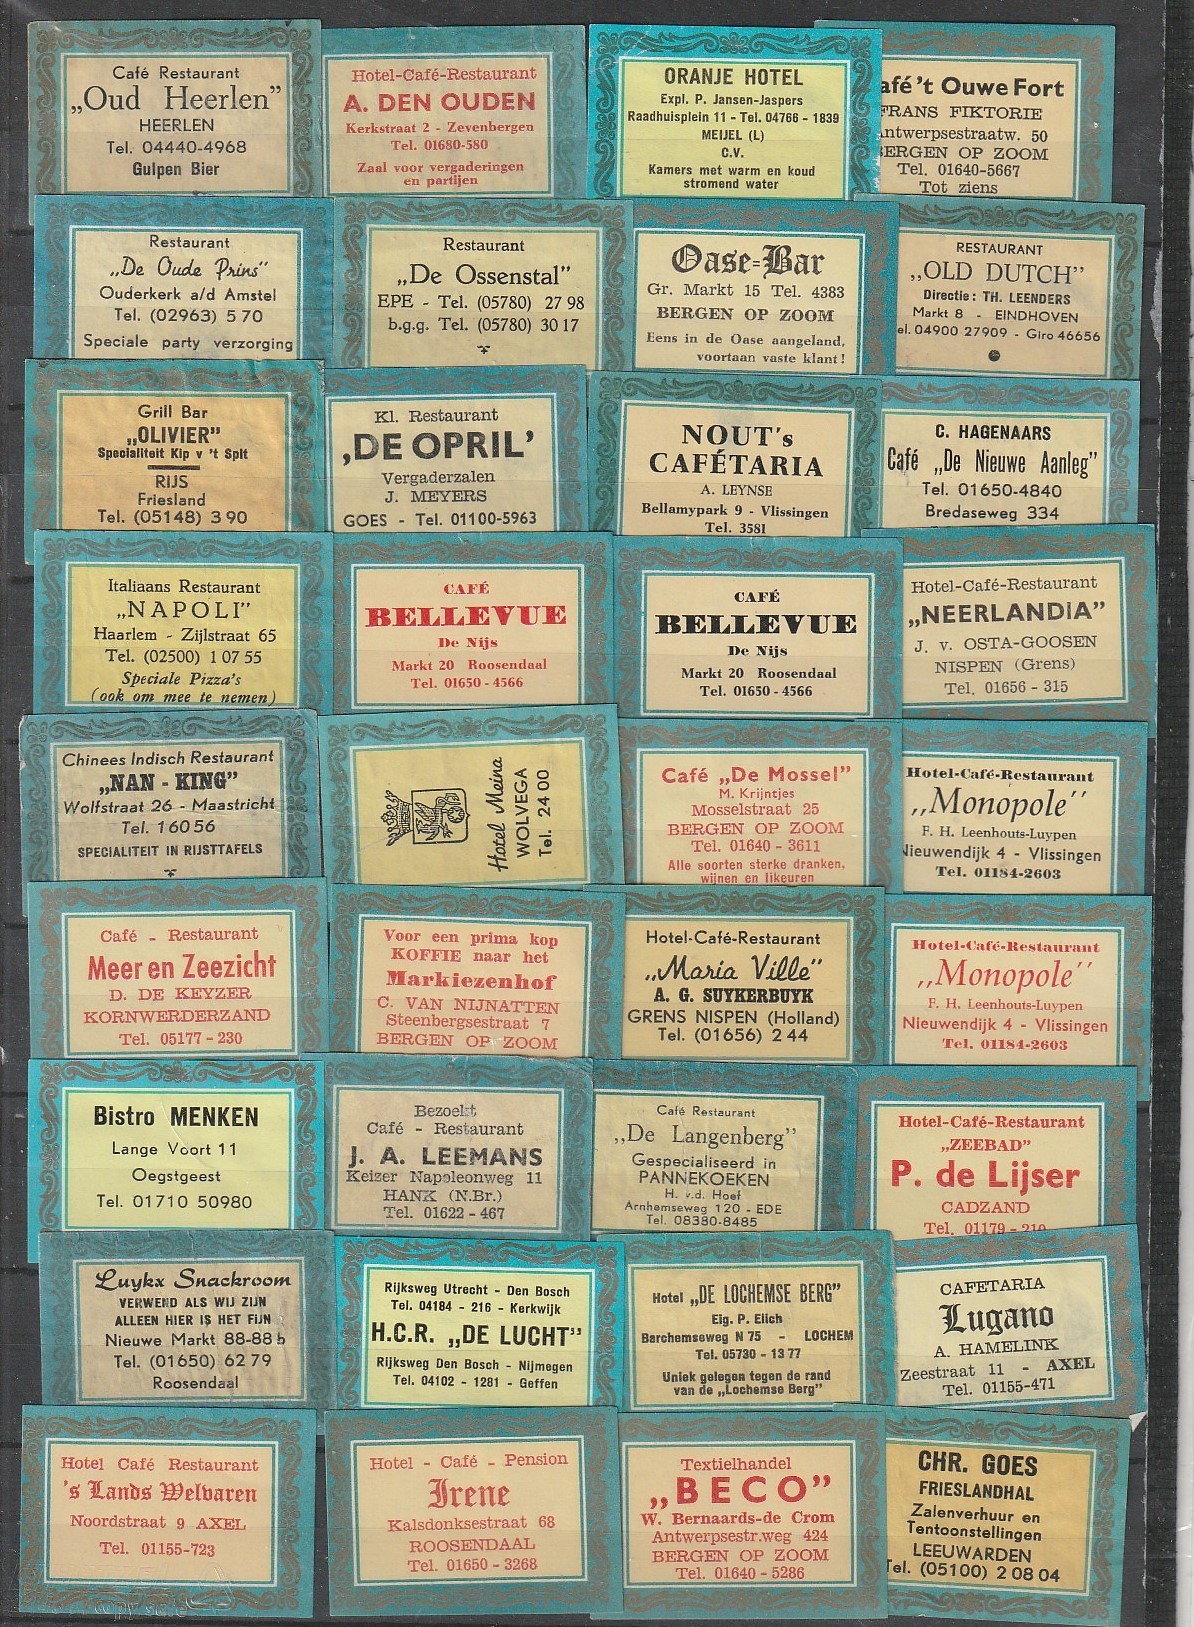 Café Restaurant
„Oud Heerlen”
HEERLEN
Tel. 04440-4968
Gulpen Bier
Hotel-Café-Restaurant
A. DEN OUDEN
Kerkstraat 2 - Zevenbergen
Tel. 01680-580
Zaal voor vergaderingen
en partijen
ORANJE HOTEL
Expl. P. Jansen-Jaspers
Raadhuisplein 11 - Tel. 04766 - 1839
MEIJEL (L)
C.V.
Kamers met warm en koud
stromend water
afé 't Ouwe Fort
FRANS FIKTORIE
Antwerpsestraatw. 50
BERGEN OP ZOOM
Tel. 01640-5667
Tot ziens
Restaurant
„De Oude Prins”
Ouderkerk a/d Amstel
Tel. (02963) 5 70
Speciale party verzorging
Restaurant
„De Ossenstal”
EPE - Tel. (05780) 27 98
b.g.g. Tel. (05780) 30 17
Oase=Bar
Gr. Markt 15 Tel. 4383
BERGEN OP ZOOM
Eens in de Oase aangeland,
voortaan vaste klant!
RESTAURANT
„OLD DUTCH”
Directie: TH. LEENDERS
Markt 8 - EINDHOVEN
el. 04900 27909 - Giro 46656
Grill Bar
„OLIVIER”
Specialiteit Kip v 't Spit
RIJS
Friesland
Tel. (05148) 3 90
Kl. Restaurant
‚DE OPRIL’
Vergaderzalen
J. MEYERS
GOES - Tel. 01100-5963
NOUT's
CAFÉTARIA
A. LEYNSE
Bellamypark 9 - Vlissingen
Tel. 3581
C. HAGENAARS
Café „De Nieuwe Aanleg”
Tel. 01650-4840
Bredaseweg 334
Italiaans Restaurant
„NAPOLI”
Haarlem - Zijlstraat 65
Tel. (02500) 1 07 55
Speciale Pizza's
(ook om mee te nemen)
CAFÉ
BELLEVUE
De Nijs
Markt 20 Roosendaal
Tel. 01650 - 4566
CAFÉ
BELLEVUE
De Nijs
Markt 20 Roosendaal
Tel. 01650 - 4566
Hotel-Café-Restaurant
„NEERLANDIA”
J. v. OSTA-GOOSEN
NISPEN (Grens)
Tel. 01656 - 315
Chinees Indisch Restaurant
„NAN - KING”
Wolfstraat 26 - Maastricht
Tel. 1 60 56
SPECIALITEIT IN RIJSTTAFELS
Hotel Meina
WOLVEGA
Tel. 24 00
Café „De Mossel”
M. Krijntjes
Mosselstraat 25
BERGEN OP ZOOM
Tel. 01640 - 3611
Alle soorten sterke dranken,
wijnen en likeuren
Hotel-Café-Restaurant
„Monopole”
F. H. Leenhouts-Luypen
Nieuwendijk 4 - Vlissingen
Tel. 01184-2603
Café - Restaurant
Meer en Zeezicht
D. DE KEYZER
KORNWERDERZAND
Tel. 05177 - 230
Voor een prima kop
KOFFIE naar het
Markiezenhof
C. VAN NIJNATTEN
Steenbergsestraat 7
BERGEN OP ZOOM
Hotel-Café-Restaurant
„Maria Ville”
A. G. SUYKERBUYK
GRENS NISPEN (Holland)
Tel. (01656) 2 44
Hotel-Café-Restaurant
„Monopole”
F. H. Leenhouts-Luypen
Nieuwendijk 4 - Vlissingen
Tel. 01184-2603
Bistro MENKEN
Lange Voort 11
Oegstgeest
Tel. 01710 50980
Bezoekt
Café - Restaurant
J. A. LEEMANS
Keizer Napoleonweg 11
HANK (N.Br.)
Tel. 01622 - 467
Café Restaurant
„De Langenberg”
Gespecialiseerd in
PANNEKOEKEN
H. v.d. Hoef
Arnhemseweg 120 - EDE
Tel. 08380-8485
Hotel-Café-Restaurant
„ZEEBAD”
P. de Lijser
CADZAND
Tel. 01179 - 210
Luykx Snackroom
VERWEND ALS WIJ ZIJN
ALLEEN HIER IS HET FIJN
Nieuwe Markt 88-88 b
Tel. (01650) 62 79
Roosendaal
Rijksweg Utrecht - Den Bosch
Tel. 04184 - 216 - Kerkwijk
H.C.R. „DE LUCHT”
Rijksweg Den Bosch - Nijmegen
Tel. 04102 - 1281 - Geffen
Hotel „DE LOCHEMSE BERG”
Eig. P. Elich
Barchemseweg N 75 - LOCHEM
Tel. 05730 - 13 77
Uniek gelegen tegen de rand
van de „Lochemse Berg”
CAFETARIA
Lugano
A. HAMELINK
Zeestraat 11 - AXEL
Tel. 01155-471
Hotel Café Restaurant
's Lands Welvaren
Noordstraat 9 AXEL
Tel. 01155-723
Hotel - Café - Pension
Irene
Kalsdonksestraat 68
ROOSENDAAL
Tel. 01650 - 3268
Textielhandel
„BECO”
W. Bernaards-de Crom
Antwerpsestr.weg 424
BERGEN OP ZOOM
Tel. 01640 - 5286
CHR. GOES
FRIESLANDHAL
Zalenverhuur en
Tentoonstellingen
LEEUWARDEN
Tel. (05100) 2 08 04